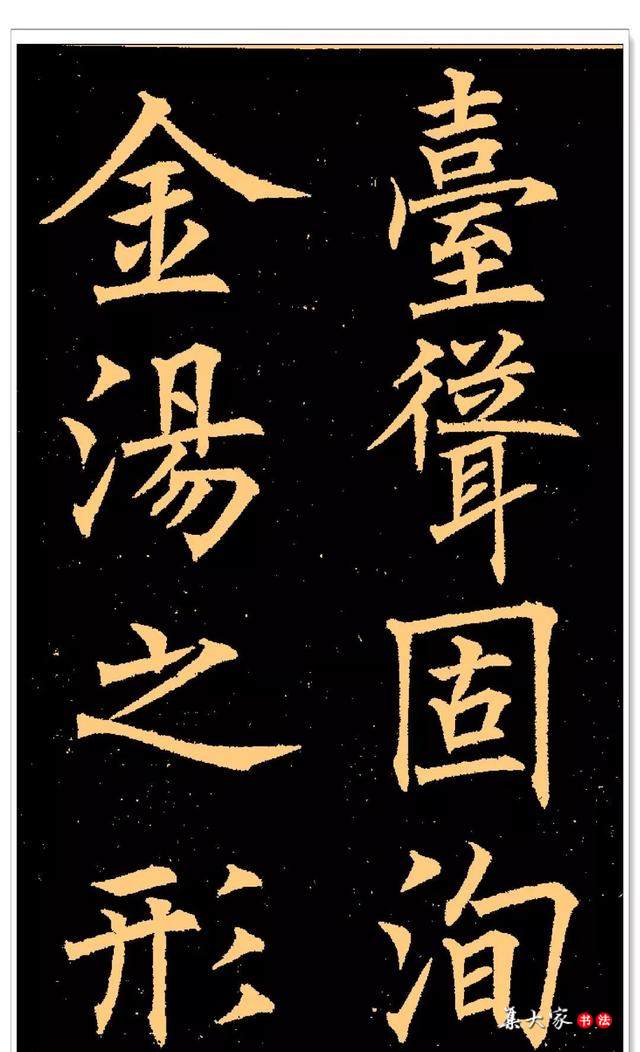 臺聳固洵
金湯之形
集大家书法